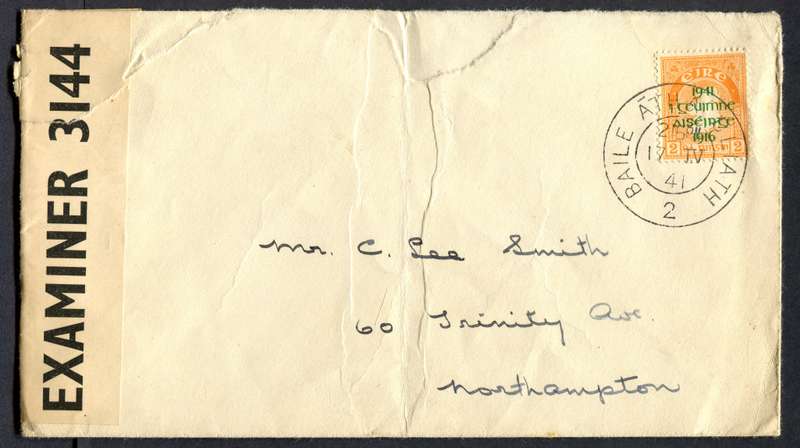 EXAMINER 3144
ÉIRE
1941
i gcuimhne
AISÉIRGE
1916
2 2
BAILE ÁTHA CLIATH
17 IV
41
2
Mr. C. Lee Smith
60 Trinity Ave.
Northampton